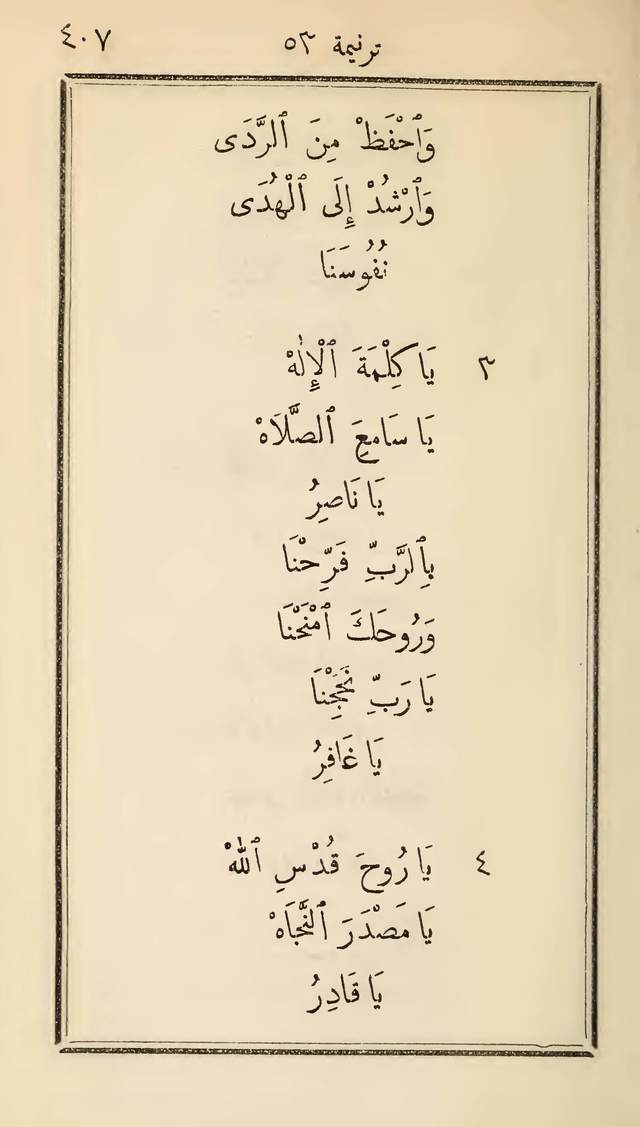 ترنيمة ٥٣ ٤٠٧
وَٱحْفَظْ مِنَ ٱلرَّدَى
وَٱرْشُدْ إِلَى ٱلْهُدَى
نُفُوسَنَا
٣ يَا كِلْمَةَ ٱلْإِلٰهْ
يَا سَامِعَ ٱلصَّلَاهْ
يَا نَاصِرُ
بِٱلرَّبِّ فَرِّحْنَا
وَرُوحَكَ ٱمْنَحْنَا
يَا رَبِّ نَجِّنَا
يَا غَافِرُ
٤ يَا رُوحَ قُدْسِ ٱللهْ
يَا مَصْدَرَ ٱلنَّجَاهْ
يَا قَادِرُ